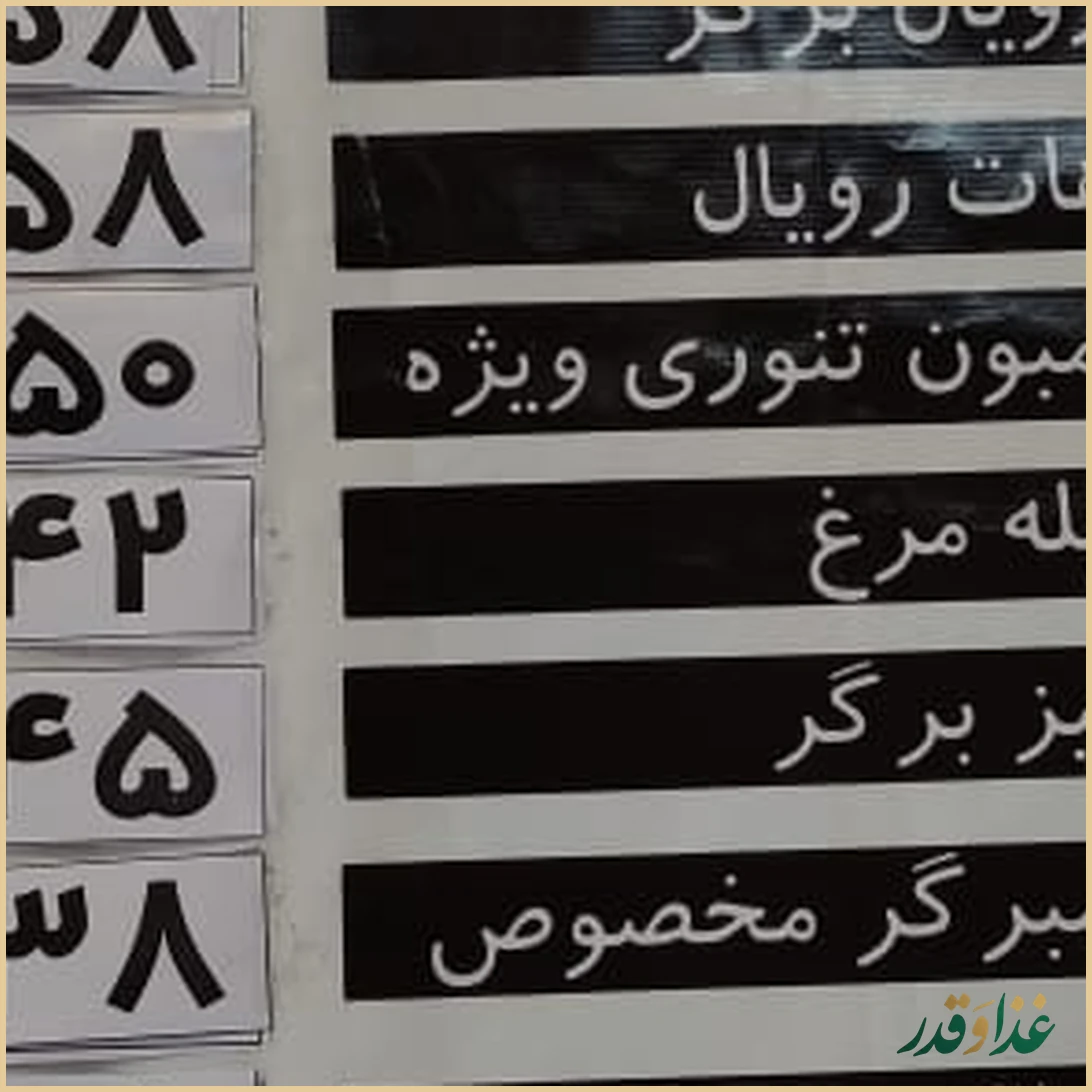 رویال برگر ۵۸
رویال ۵۸
تنوری ویژه ۵۰
مرغ ۴۲
برگر ۴۵
برگر مخصوص ۳۸
غذا وَ قدر